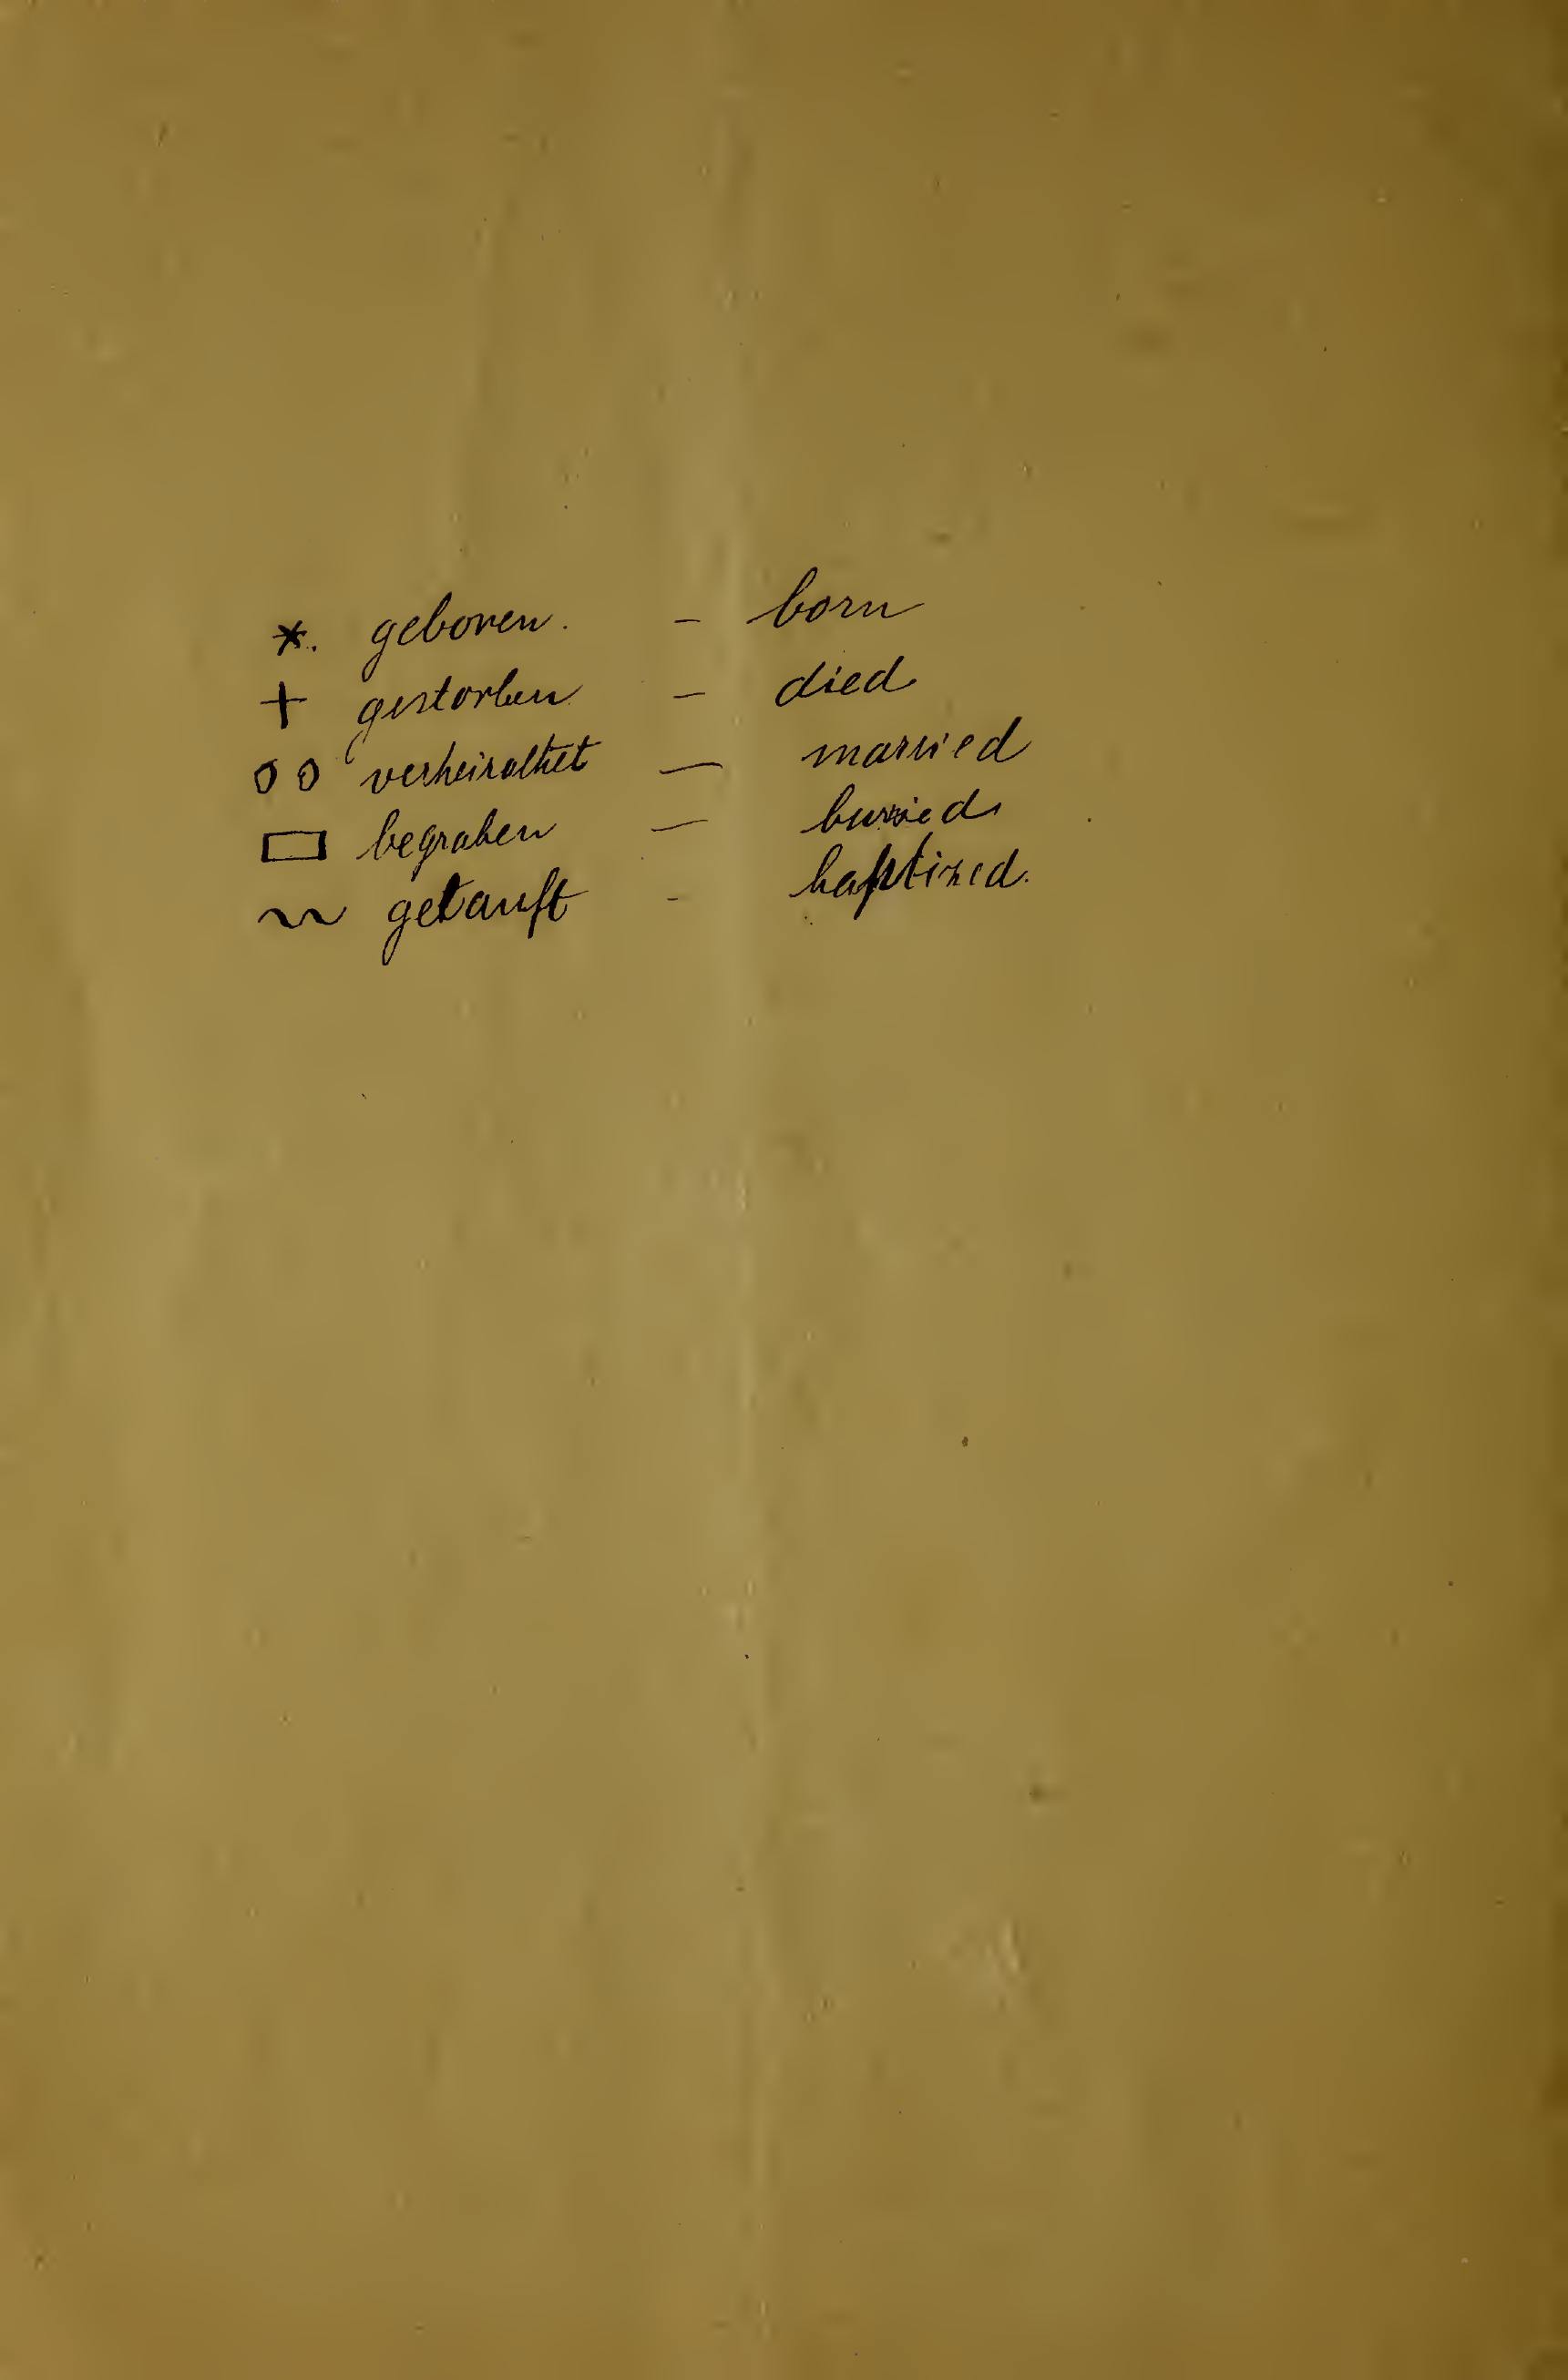 *. geboren. - born
+ gestorben - died
o o verheirathet — married
▭ begraben — buried
~~ getauft - baptized.